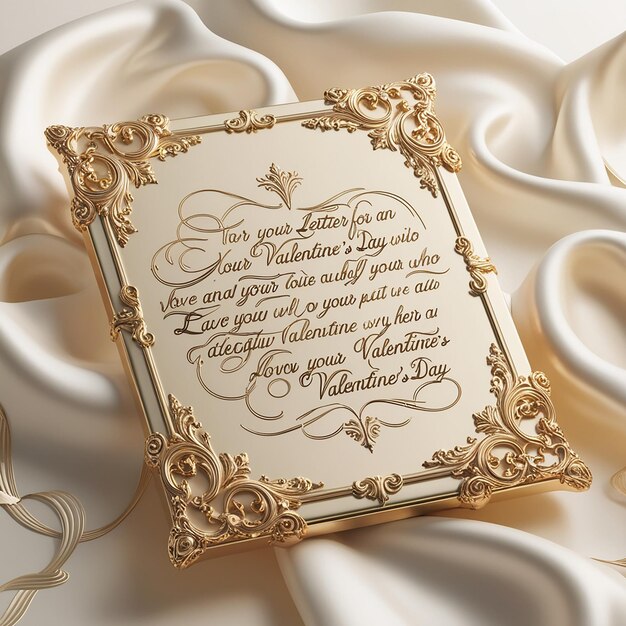 Tar your Letter for an
Your Valentine's Day wilo
Vove and your loie aubell your who
Eave you wll o your pait we allo
a decgiiw Valentine wvy her a
Jovor your Valentine's
Valentine's Day